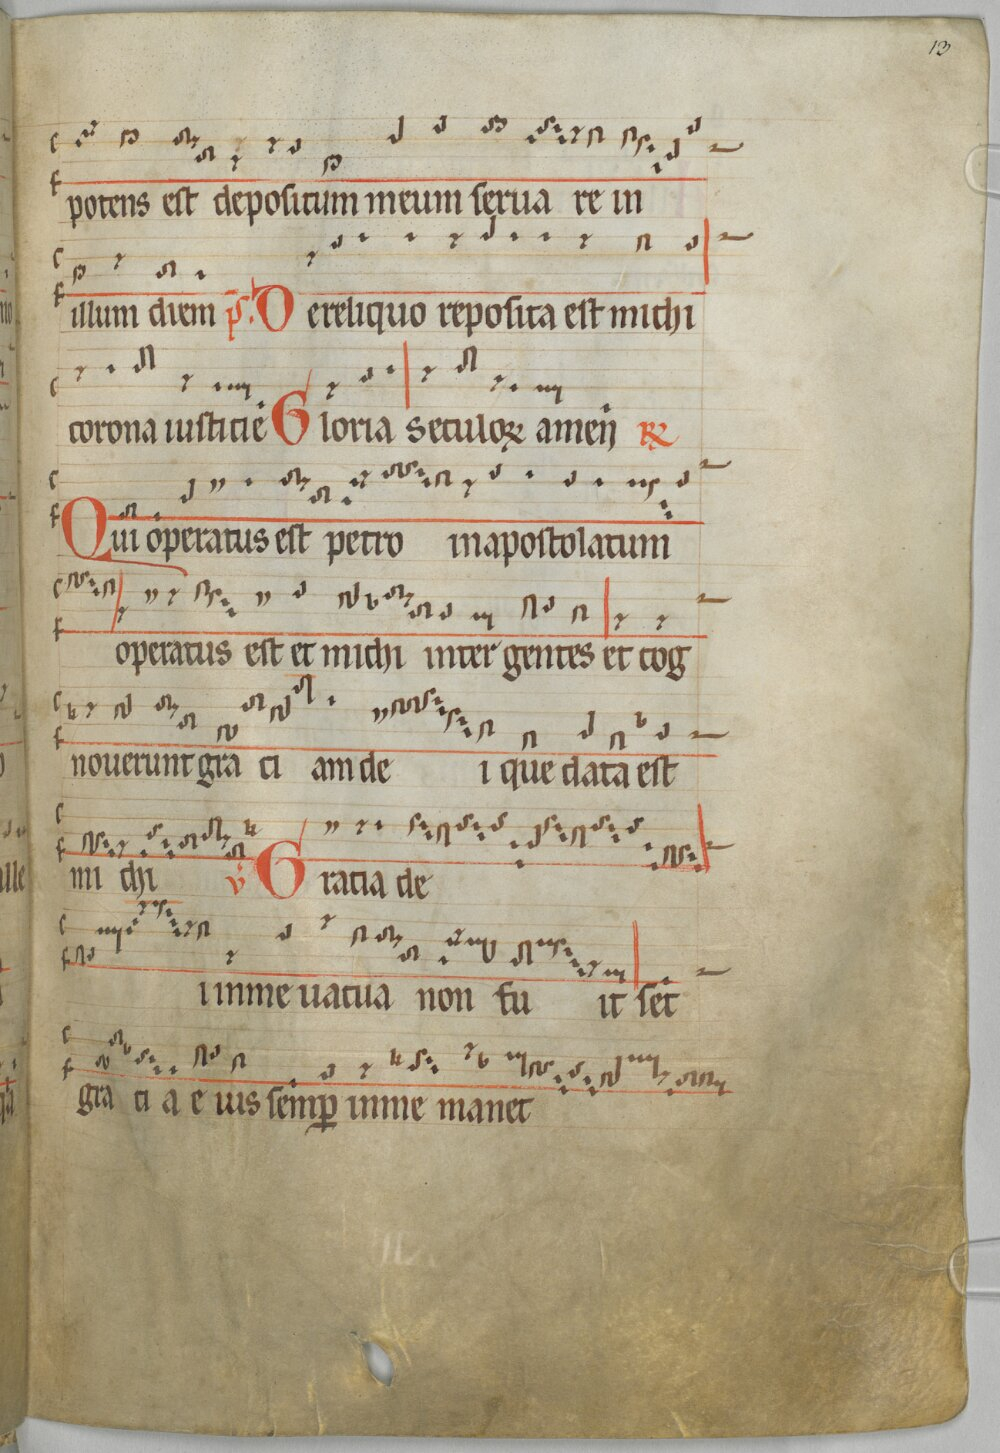 13
potens est depositum meum serua re in
illum diem p̃. De reliquo reposita est michi
corona iusticie Gloria seculoꝝ amen ℟
Qui operatus est petro inapostolatum
operatus est et michi inter gentes et cog
nouerunt gra ci am de i que data est
mi chi ℣ Gracia de
i inme uacua non fu it set
gra ci a e ius semꝑ inme manet